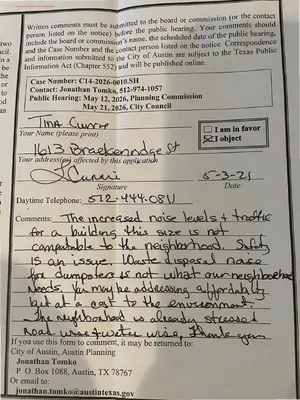 Written comments must be submitted to the board or commission (or the contact
person listed on the notice) before the public hearing. Your comments should
include the board or commission's name, the scheduled date of the public hearing,
and the Case Number and the contact person listed on the notice. Correspondence
and information submitted to the City of Austin are subject to the Texas Public
Information Act (Chapter 552) and will be published online.
Case Number: C14-2026-0010.SH
Contact: Jonathan Tomko, 512-974-1057
Public Hearing: May 12, 2026, Planning Commission
May 21, 2026, City Council
Tina Currie
Your Name (please print)
I am in favor
I object
1613 Brackenridge St
Your address(es) affected by this application
Signature
5-3-21
Date
Daytime Telephone: 512-444-0811
Comments: The increased noise levels + traffic
for a building this size is not
comparable to the neighborhood. Safety
is an issue. Waste disposal noise
for dumpsters is not what our neighborhood
needs. You may be addressing affordability
but at a cost to the environment.
The neighborhood is already stressed
road wise + water wise. Thank you
If you use this form to comment, it may be returned to:
City of Austin, Austin Planning
Jonathan Tomko
P. O. Box 1088, Austin, TX 78767
Or email to:
jonathan.tomko@austintexas.gov